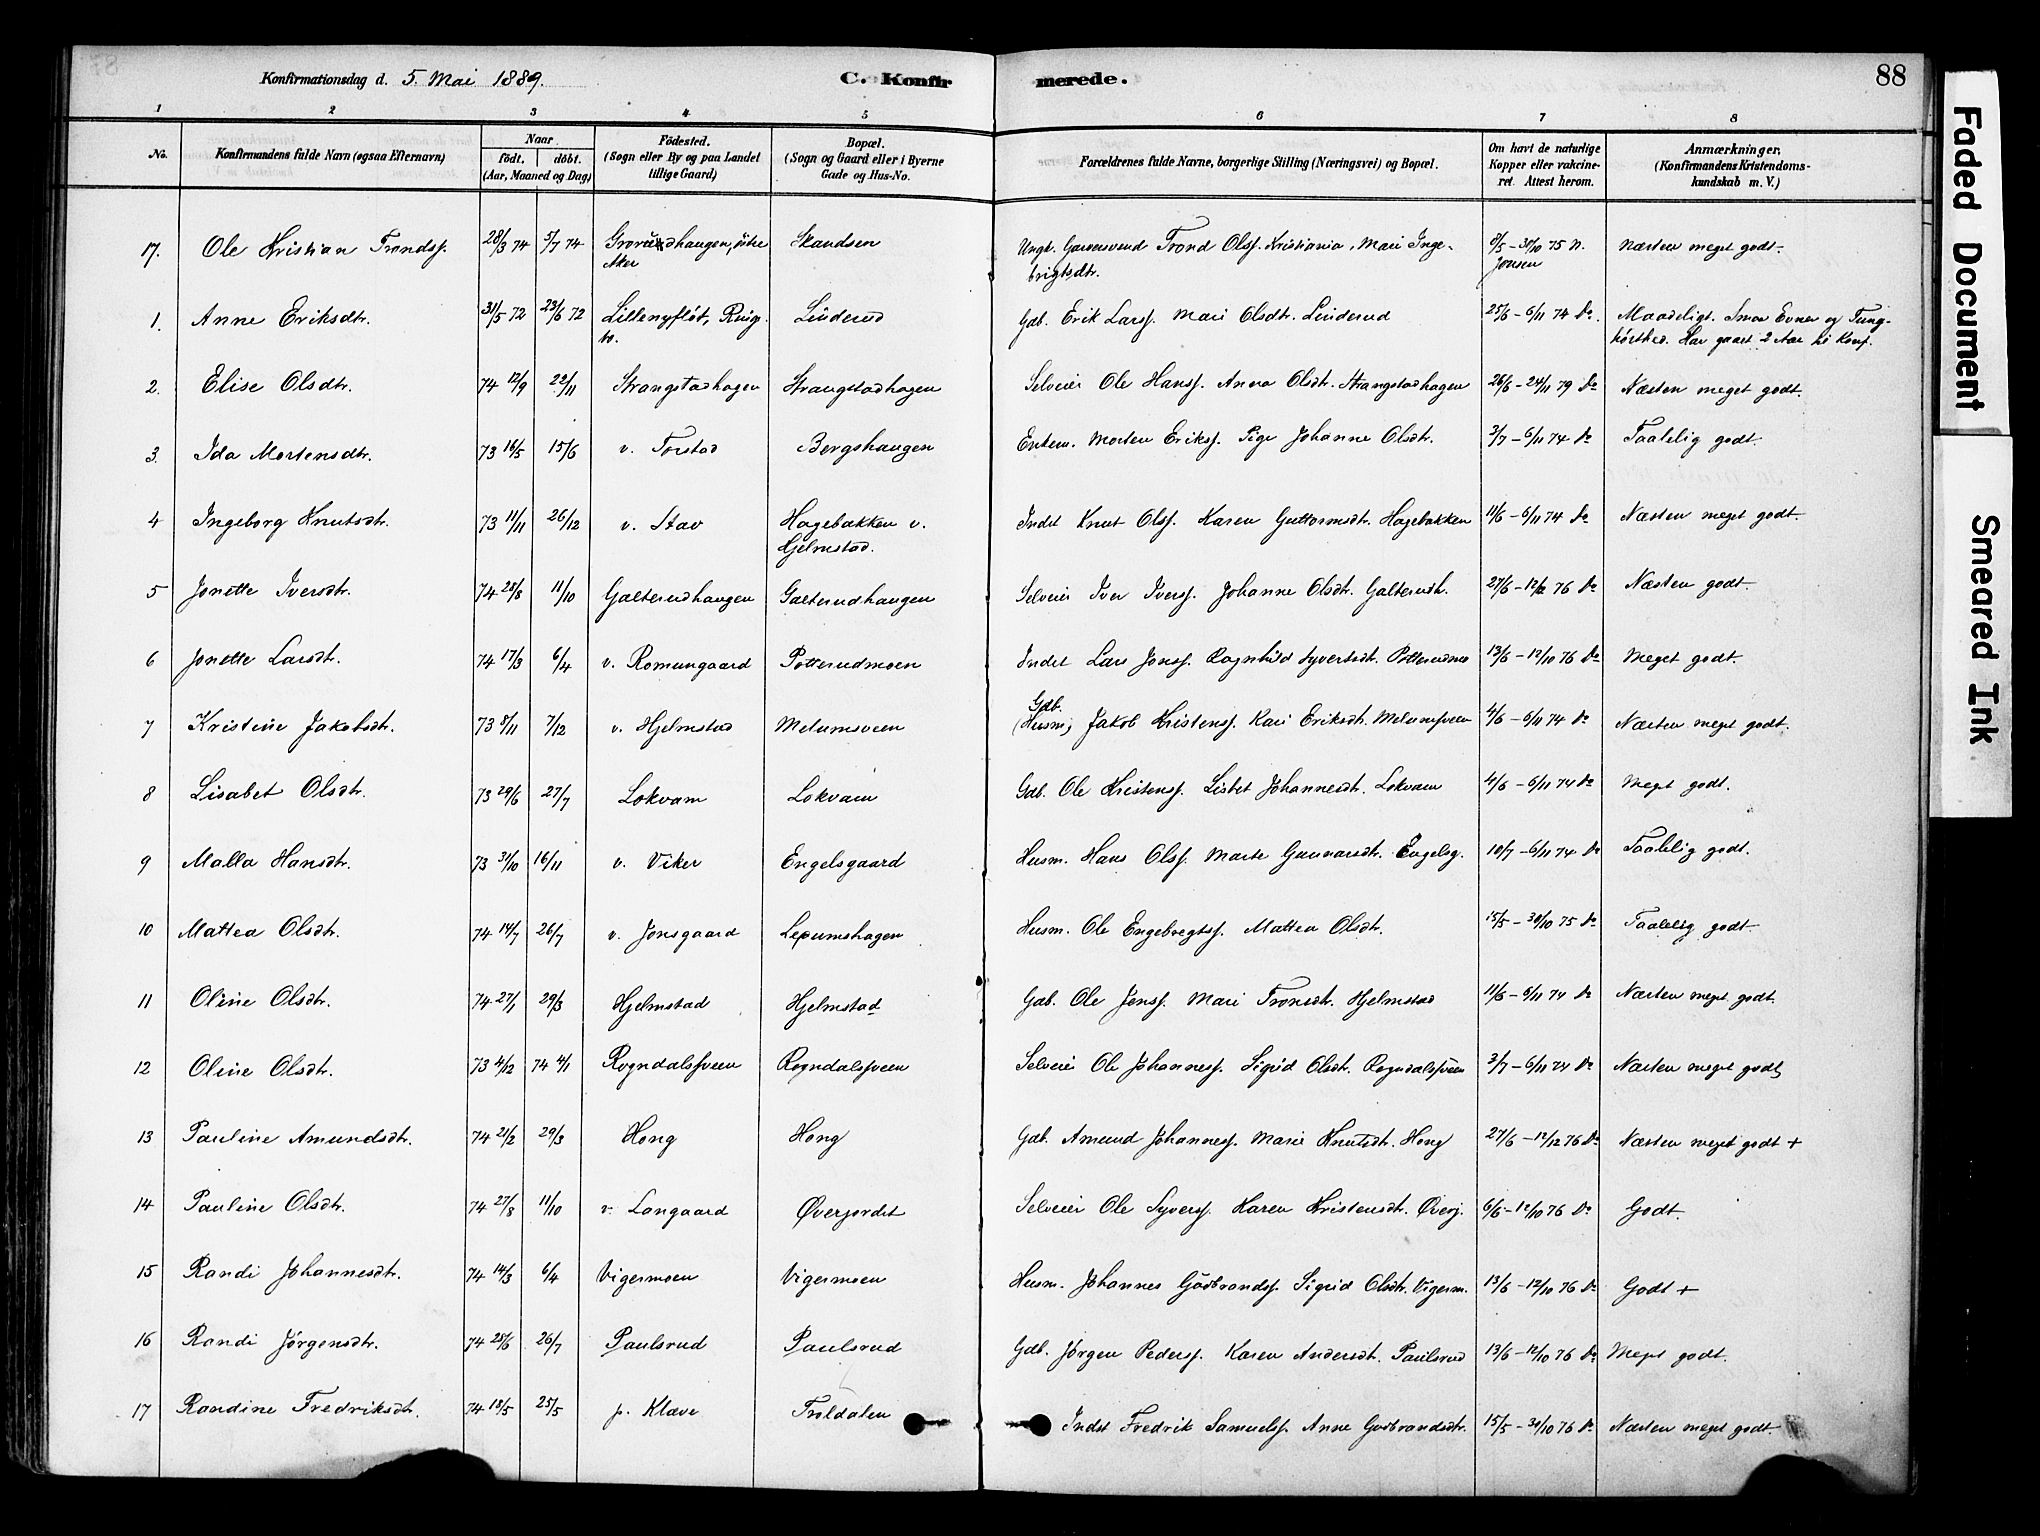 Konfirmationsdag d. 5. Mai 1889. C. Konfirmerede. 88
1 2 3 4 5 6 7 8
No. Konfirmandens fulde Navn (ogsaa Efternavn) Naar födt. döbt. (Aar, Maaned og Dag) Födested. (Sogn eller By og paa Landet tillige Gaard) Bopæl. (Sogn og Gaard eller i Byerne Gade og Hus-No. Forældrenes fulde Navne, borgerlige Stilling (Næringsvei) og Bopæl. Om havt de naturlige Kopper eller vakcineret. Attest herom. Anmærkninger, (Konfirmandens Kristendomskundskab m. V.)
17. Ole Kristian Trondss. 28/3 74 5/7 74 Grorudhaugen, östre Aker Skandsen Ungk. Garversvend Trond Olss. Kristiania, Mari Ingebrigtsdtr. 8/5 – 30/10 75 N. Jonsen Næsten meget godt.
1. Anne Eriksdtr. 31/5 72 23/6 72 Lillenyflöt, Linderud Gdb. Erik Larss. Mari Olsdtr. Linderud 25/6 – 6/11 74 Do. Maadeligt. Smaa Evner og Tunghörthed. Har gaaet 2 Aar til Konf.
2. Elise Olsdtr. 74 12/9 22/11 Strangstadhagen Strangstadhagen Selveier Ole Hanss. Anna Olsdtr. Strangstadhagen 26/6 – 24/11 79 Do Næsten meget godt.
3. Ida Mortensdtr. 73 16/5 15/6 v. Torstad Bergshaugen Enkem. Morten Erikss. Pige Johanne Olsdtr. 3/7 – 6/11 74 Do Taalelig godt.
4 Ingeborg Knutsdtr. 73 11/11 26/12 v. Stav Hagebakken v. Hjelmstad. Indst Knut Olss. Karen Guttormsdtr. Hagebakken 11/6 – 6/11 74 Do Næsten meget godt.
5 Jonette Iversdtr. 74 28/8 11/10 Galterudhaugen Galterudhaugen Selveier Iver Iverss. Johanne Olsdtr. Galterudh. 27/6 – 12/12 76 Do Næsten godt.
6 Jonette Larsdtr. 74 17/3 6/4 v. Romungaard Potterudmoen Indst Lars Jonss. Ragnhild Syvertsdtr. 13/6 – 12/10 76 Do Meget godt.
7 Kristine Jakobsdtr. 73 8/11 7/12 v. Hjelmstad Melumsveen Gdb. (Husm) Jakob Kristenss. Kari Eriksdtr. Melumsveen 4/6 – 6/11 74 Do Næsten meget godt.
8 Lisabet Olsdtr. 73 29/6 27/7 Lokvam Lokvam Gdb. Ole Kristenss. Lisbet Johannesdtr. Lokvam 4/6 – 6/11 74 Do Meget godt.
9 Malla Hansdtr. 73 31/10 16/11 v. Viker Engelsgaard Husm. Hans Olss. Marte Gunnarsdtr. Engelsg. 10/7 – 6/11 74 Do Taalelig godt.
10 Mattea Olsdtr. 74 14/7 26/7 v. Jonsgaard Lepumshagen Husm. Ole Engebregtss. Mattea Olsdtr. 15/5 – 30/10 75 Do Taalelig godt.
11 Oline Olsdtr. 74 27/1 29/3 Hjelmstad Hjelmstad Gdb. Ole Jenss. Mari Tronsdtr. Hjelmstad 11/6 – 6/11 74 Do Næsten meget godt.
12 Oline Olsdtr. 73 4/12 74 4/1 Rogndalssveen Rogndalssveen Selveier Ole Johanness. Sigrid Olsdtr. Rogndalssveen 3/7 – 6/11 74 Do Næsten meget godt
13 Pauline Amundsdtr. 74 21/2 29/3 Hong Hong Gdb. Amund Johanness. Marie Knutsdtr. Hong 27/6 – 12/12 76 Do Næsten meget godt +
14 Pauline Olsdtr. 74 27/8 11/10 v. Langaard Øverjordet Selveier Ole Syverss. Karen Kristensdtr. Øverj. 6/6 – 12/10 76 Do Godt.
15 Randi Johannesdtr. 74 14/3 6/4 Vigermoen Vigermoen Husm. Johannes Gudbrandss. Sigrid Olsdtr. Vigerm. 13/6 – 12/10 76 Do Godt +
16 Randi Jörgensdtr. 74 25/6 26/7 Paulsrud Paulsrud Gdb. Jörgen Pederss. Karen Andersdtr. Paulsrud 13/6 – 12/10 76 Do Meget godt.
17 Randine Fredriksdtr. 74 18/5 25/5 p. Klæve Troldalen Indst Fredrik Samuelss. Anne Gudbrandsdtr. 15/5 – 30/10 76 Do Næsten meget godt.
Faded Document
Smeared Ink